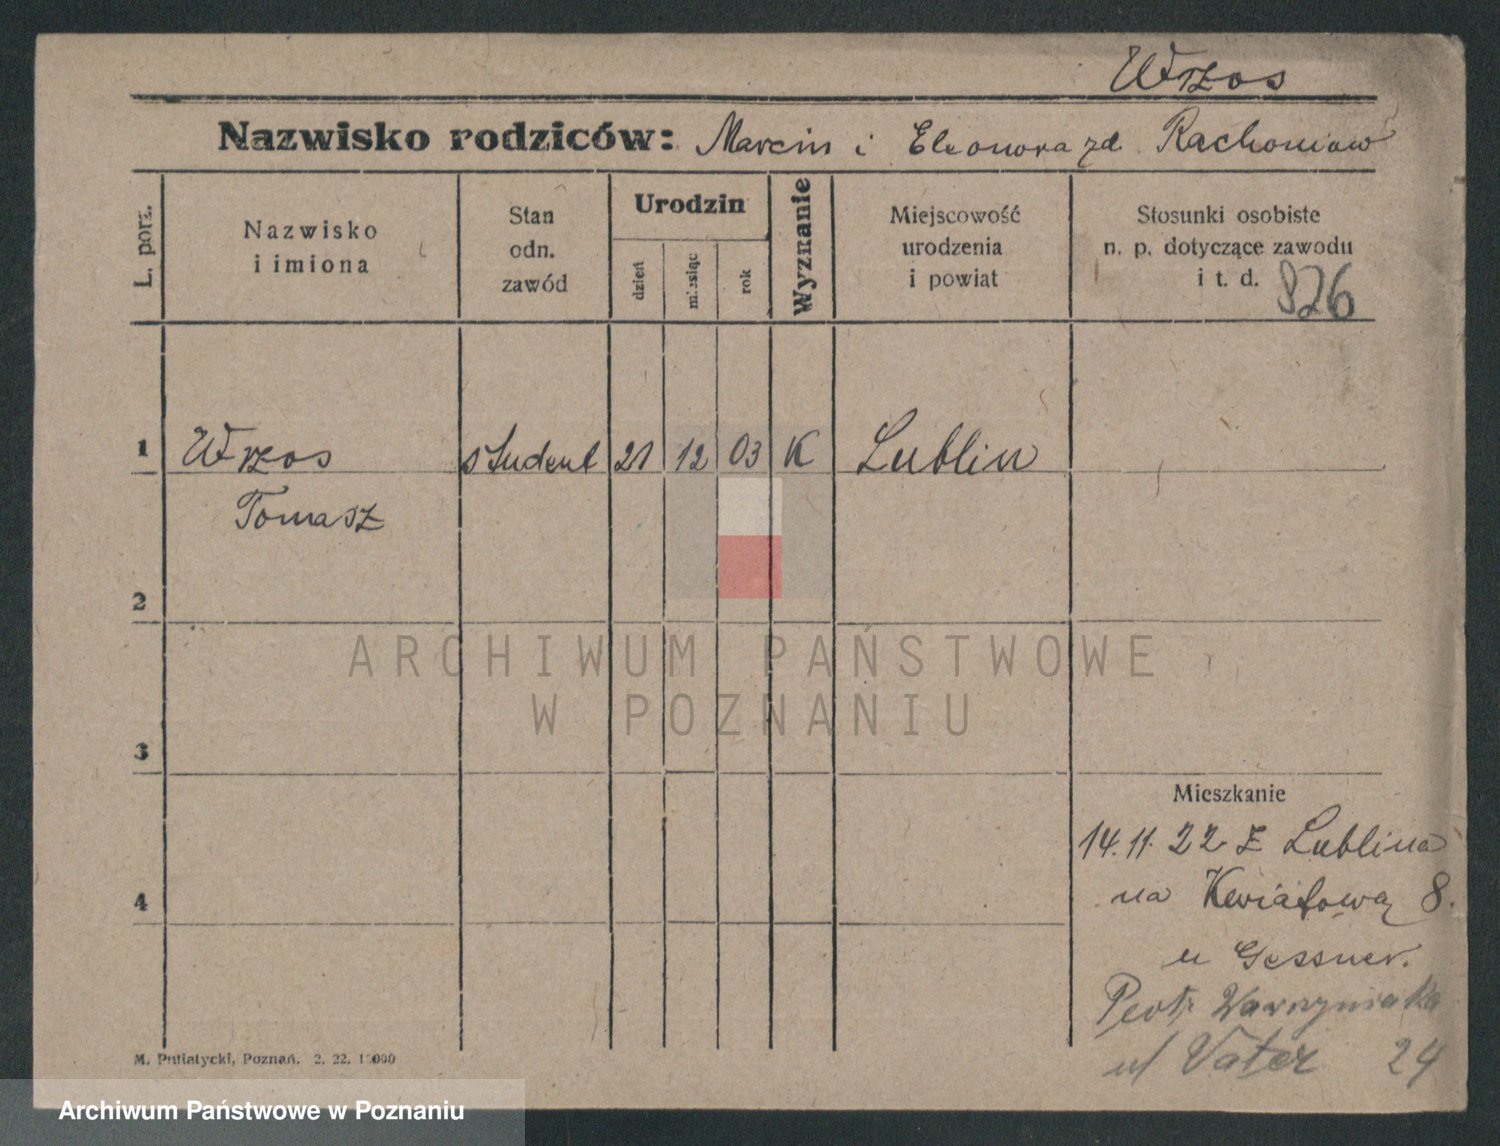 Wrzos
Nazwisko rodziców: Marcin i Eleonora zd. Rachoniow
L. porz.
Nazwisko
i imiona
Stan
odn.
zawód
Urodzin
dzień
miesiąc
rok
Wyznanie
Miejscowość
urodzenia
i powiat
Stosunki osobiste
n. p. dotyczące zawodu
i t. d.
826
1 Wrzos student 21 12 03 K Lublin
Tomasz
2
3
4
Mieszkanie
14.11.22 z Lublina
na Kwiatową 8.
u Gessner.
Piotr Wawrzyniaka
24
M. Putiatycki, Poznań. 2. 22.
ARCHIWUM PAŃSTWOWE
W POZNANIU
Archiwum Państwowe w Poznaniu